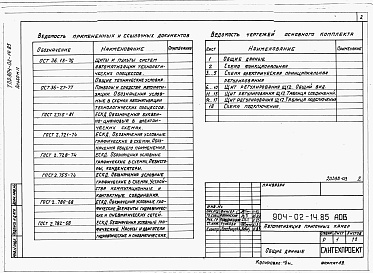 2
Ведомость примененных и ссылочных документов
Обозначение
Наименование
Примечание
ОСТ 36.13-76
Щиты и пульты систем
автоматизации технологи-
ческих процессов.
Общие технические условия
ОСТ 36-27-77
Приборы и средства автомати-
зации. Обозначения услов-
ные в схемах автоматизации
технологических процессов.
ГОСТ 2.710-81
ЕСКД. Обозначения буквен-
но-цифровые в электри-
ческих схемах
ГОСТ 2.721-74
ЕСКД. Обозначения условные
графические в схемах. Обоз-
начения общего применения.
ГОСТ 2.728-74
ЕСКД. Обозначения условные
графические в схемах. Резисто-
ры, конденсаторы.
ГОСТ 2.755-74
ЕСКД. Обозначения условные
графические в схемах. Устройст-
ва коммутационные и
контактные соединения.
ГОСТ 2.780-68
ЕСКД. Обозначения условные гра-
фические. Элементы гидравличес-
ких и пневматических сетей.
ГОСТ 2.782-68
ЕСКД. Обозначения условные гра-
фические. Насосы и двигатели
гидравлические и пневматические.
Ведомость чертежей основного комплекта
Лист
Наименование
Примечание
1
Общие данные
2
Схема функциональная
3..5
Схема электрическая принципиальная
регулирования
Щит регулирования Щ12. Общий вид.
Щит регулирования Щ12. Таблица соединений
Щит регулирования Щ12. Таблица подключения
18
Схема подключения
20268-03 2
Привязан
904-02-14.85 АОВ
Автоматизация приточных камер
Общие данные
САНТЕХПРОЕКТ
Формат А3